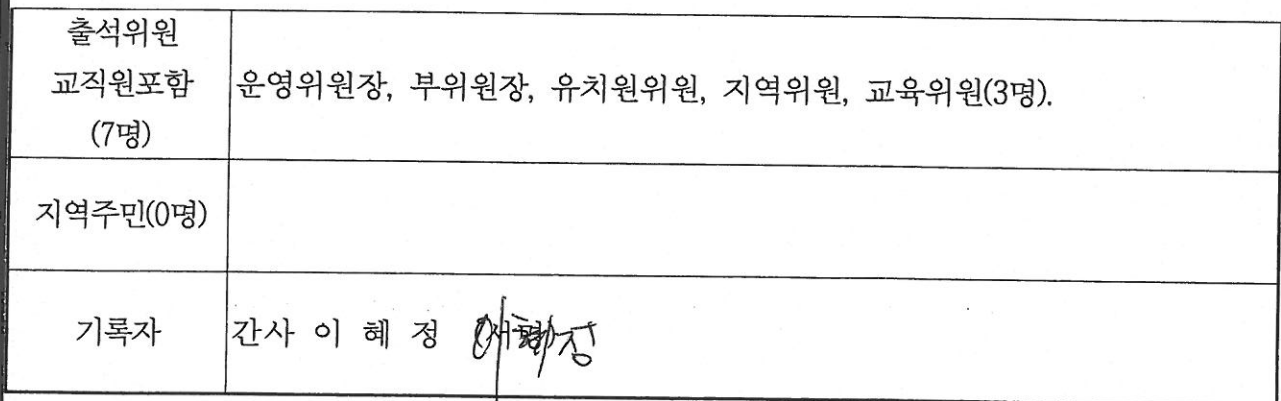 출석위원
교직원포함
(7명)
운영위원장, 부위원장, 유치원위원, 지역위원, 교육위원(3명).
지역주민(0명)
기록자
간사 이 혜 정 (서명) 이혜정